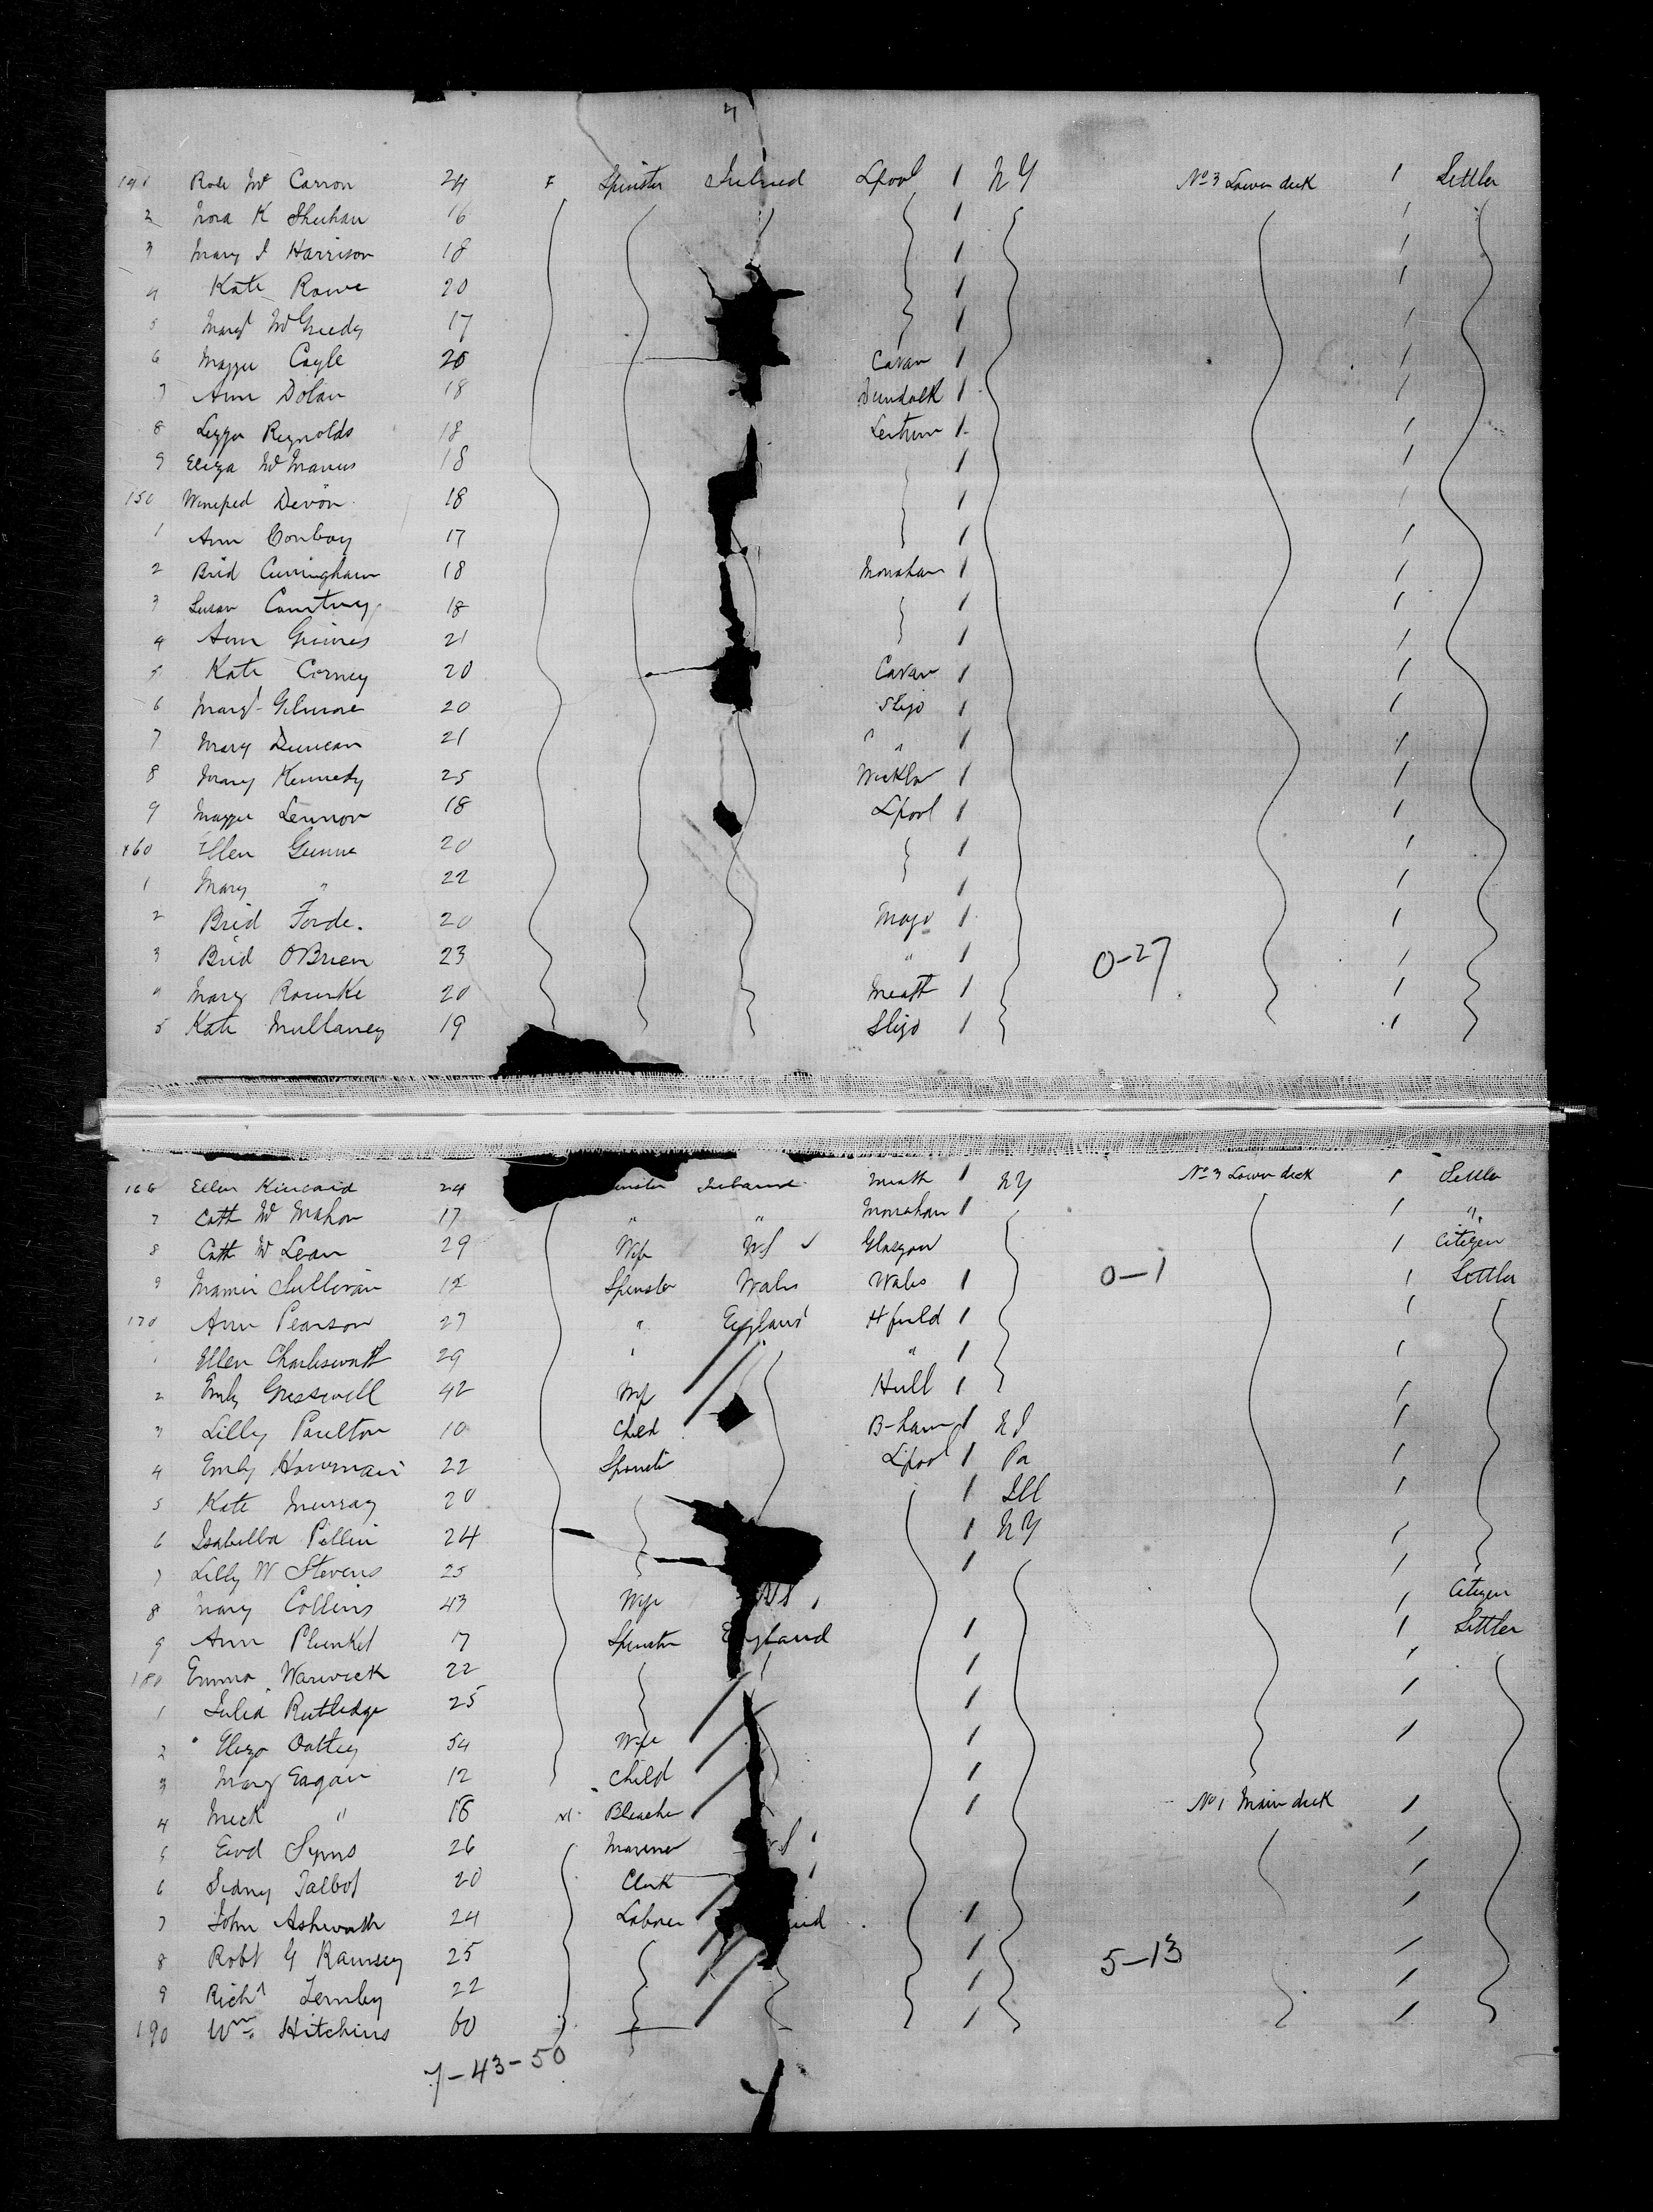 141 Rose Mc Carron 24 F Spinster Ireland Lpool 1 NY No 3 Lower deck 1 Settler
2 Nora K Sheehan 16 1
3 Mary J Harrison 18 1
4 Kate Rowe 20 1
5 Margt McGreedy 17 1
6 Maggie Coyle 20 Cavan 1
7 Ann Dolan 18 Dundalk 1
8 Lizzie Reynolds 18 Leitrim 1
9 Eliza McManus 18 1
150 Winefred Devon 18 1
1 Ann Conboy 17 1
2 Brid Cunningham 18 Monahan 1
3 Susan Courtney 18 1
4 Ann Grimes 21 1
5 Kate Corney 20 Cavan 1
6 Margt Gilmore 20 Sligo 1
7 Mary Duncan 21 " 1
8 Mary Kennedy 25 Wicklow 1
9 Maggie Lennon 18 Lpool 1
160 Ellen Gunne 20 1
1 Mary " 22 1
2 Brid Forde 20 Mayo 1
3 Brid O'Brien 23 " 1 0-27
4 Mary Rourke 20 Meath 1
5 Kate Mullaney 19 Sligo 1
166 Ellen Kincaid 24 Ireland Meath 1 NY No 3 Lower deck 1 Settler
7 Cath Mc Mahon 17 " " Monahan 1 1 "
8 Cath Mc Lean 29 Wife US Glasgow 1 Citizen
9 Mamie Sullivan 12 Spinster Wales Wales 1 0-1 1 Settler
170 Ann Pearson 27 " England Hfield 1
1 Ellen Charlesworth 29 " " 1
2 Emly Gresswell 42 Wife Hull 1
3 Lilly Poulton 10 Child B-ham 1 NJ
4 Emly 22 Spinster Lpool 1 Pa
5 Kate Murray 20 1 Ill
6 Isabella Pillin 24 1 NY
7 Lilly W Stevens 25 1
8 Mary Collins 43 Wife US 1 Citizen
9 Ann Plunket 17 Spinster England 1 1 Settler
180 Emma Warwick 22 1
1 Julia Rutledge 25 1
2 Eliza Oatley 54 Wife 1
3 Mary Eagan 12 Child 1
4 Mick " 18 M Bleacher 1 No 1 Main deck 1
5 Syms 26 Mariner
6 Sidney Talbot 20 Clerk
7 John Ashworth 24 Laborer 1
8 Robt G Ramsey 25 1 5-13
9 Richd 22 1
190 Wm Hitchins 60 1
7-43-50